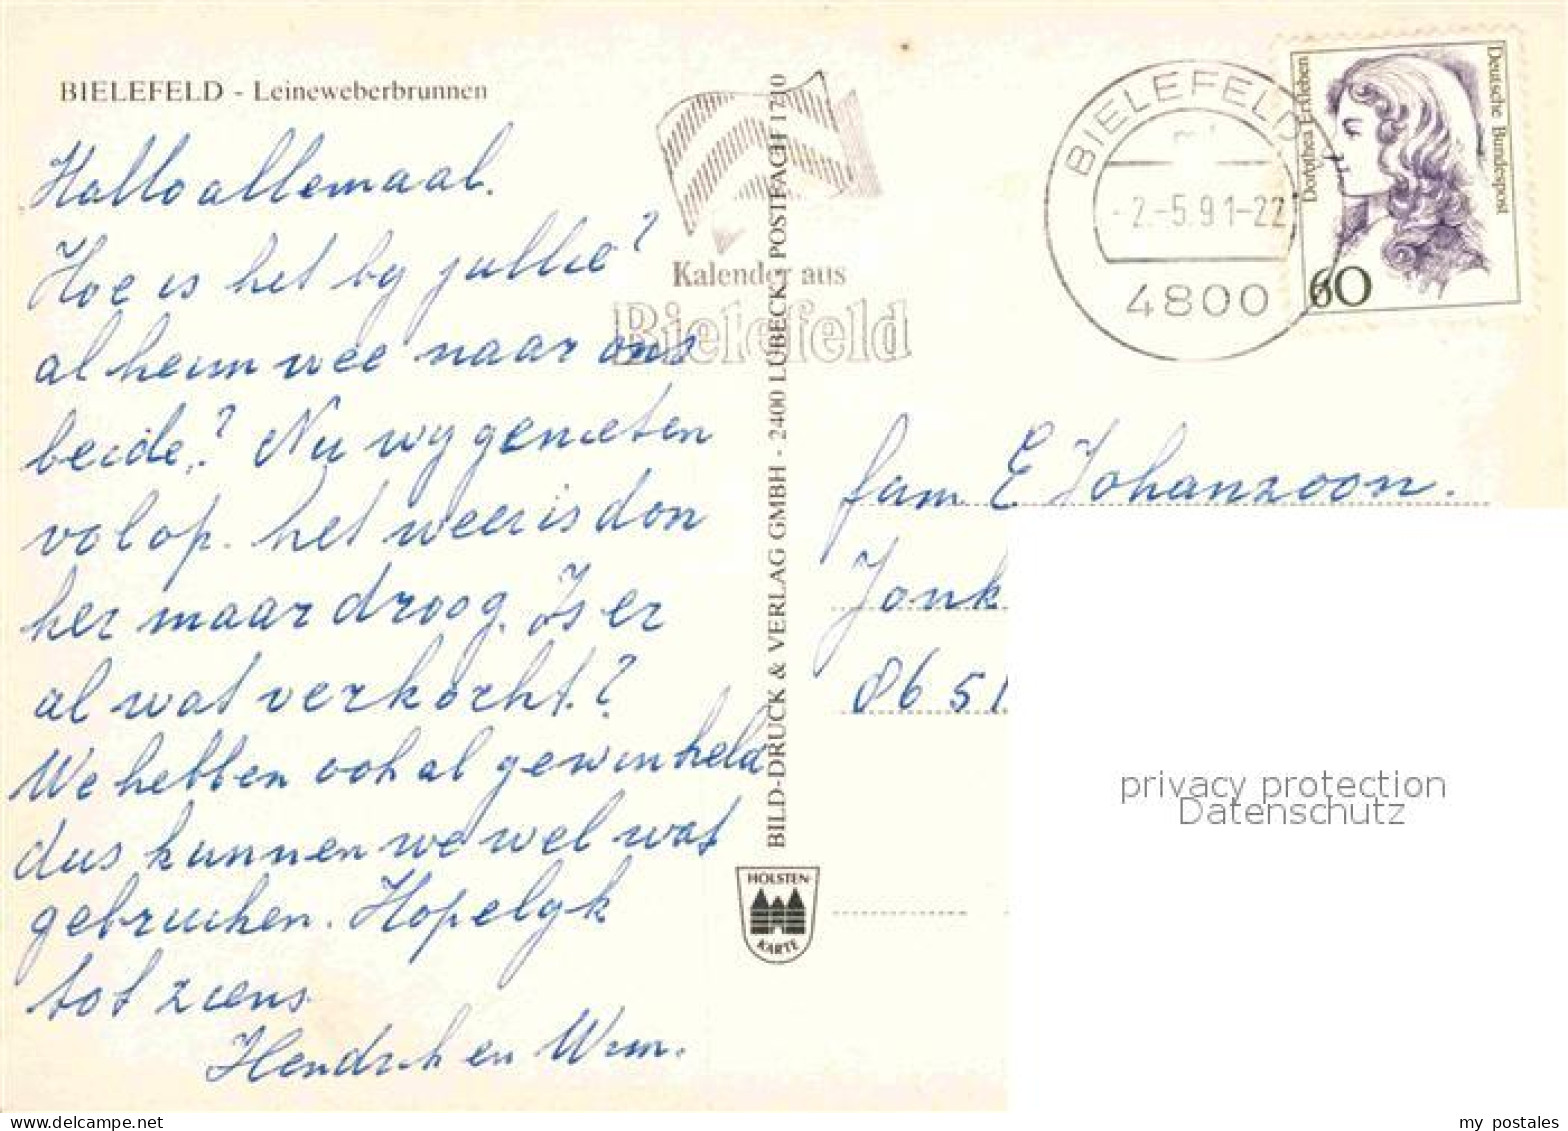 BIELEFELD - Leineweberbrunnen
Hallo allemaal.
Hoe is het by jullie?
al heim wee naar ons
beide.? Nu wy genieten
vol op. het weer is don
ker maar droog. Is er
al wat verkocht.?
We hebben ook al gewinkeld
dus kunnen we wel wat
gebruiken. Hopelyk
tot ziens
Hendrik en Wim.
Kalender aus
Bielefeld
BILD-DRUCK & VERLAG GMBH - 2400 LÜBECK 1 POSTFACH 1710
HOLSTEN-
KARTE
BIELEFELD
-2.-5.91-22
4800
Dorothea Erxleben
Deutsche Bundespost
60
fam E Johanzoon.
Jonk
8651
privacy protection
Datenschutz
my postales